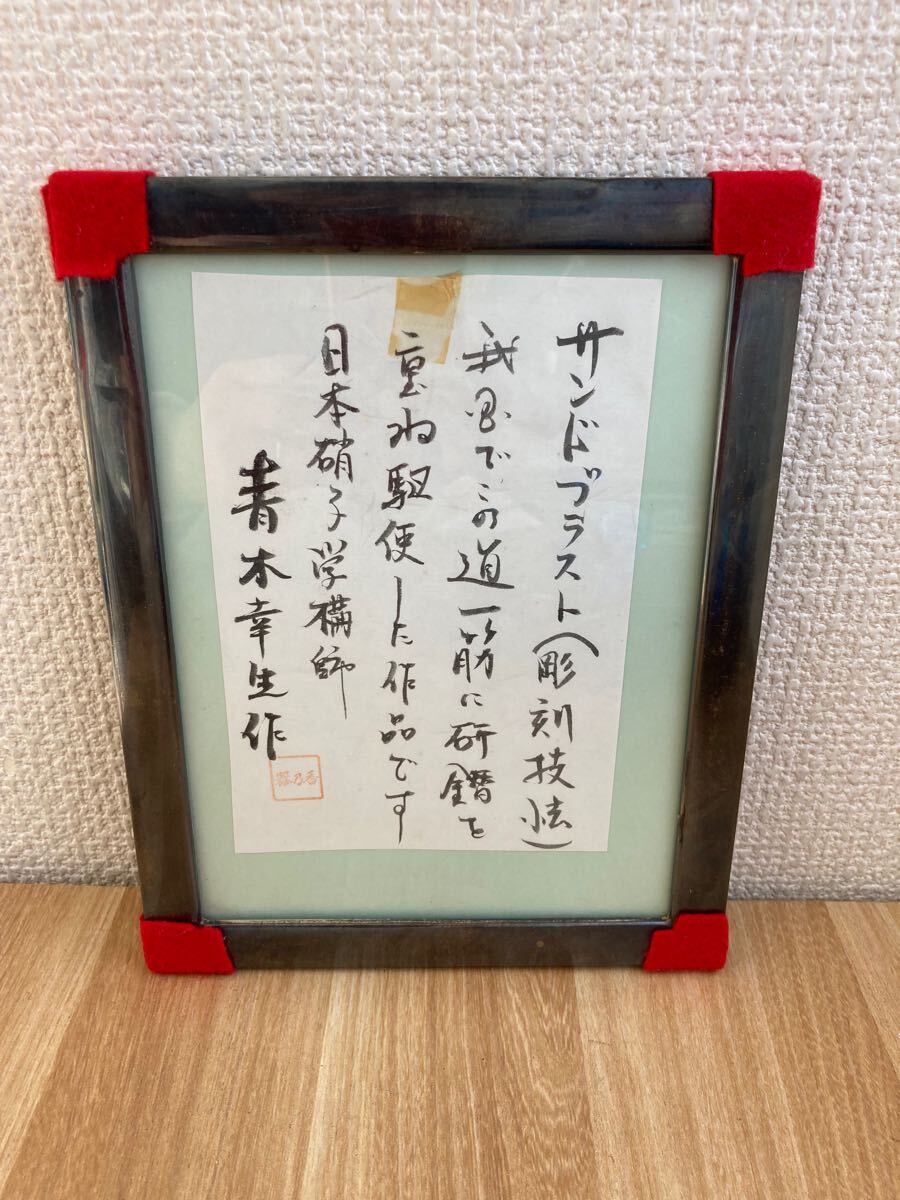 サンドブラスト(彫刻技法)
我国でこの道一筋に研鑽を
重ね駆使した作品です
日本硝子学構師
青木幸生作